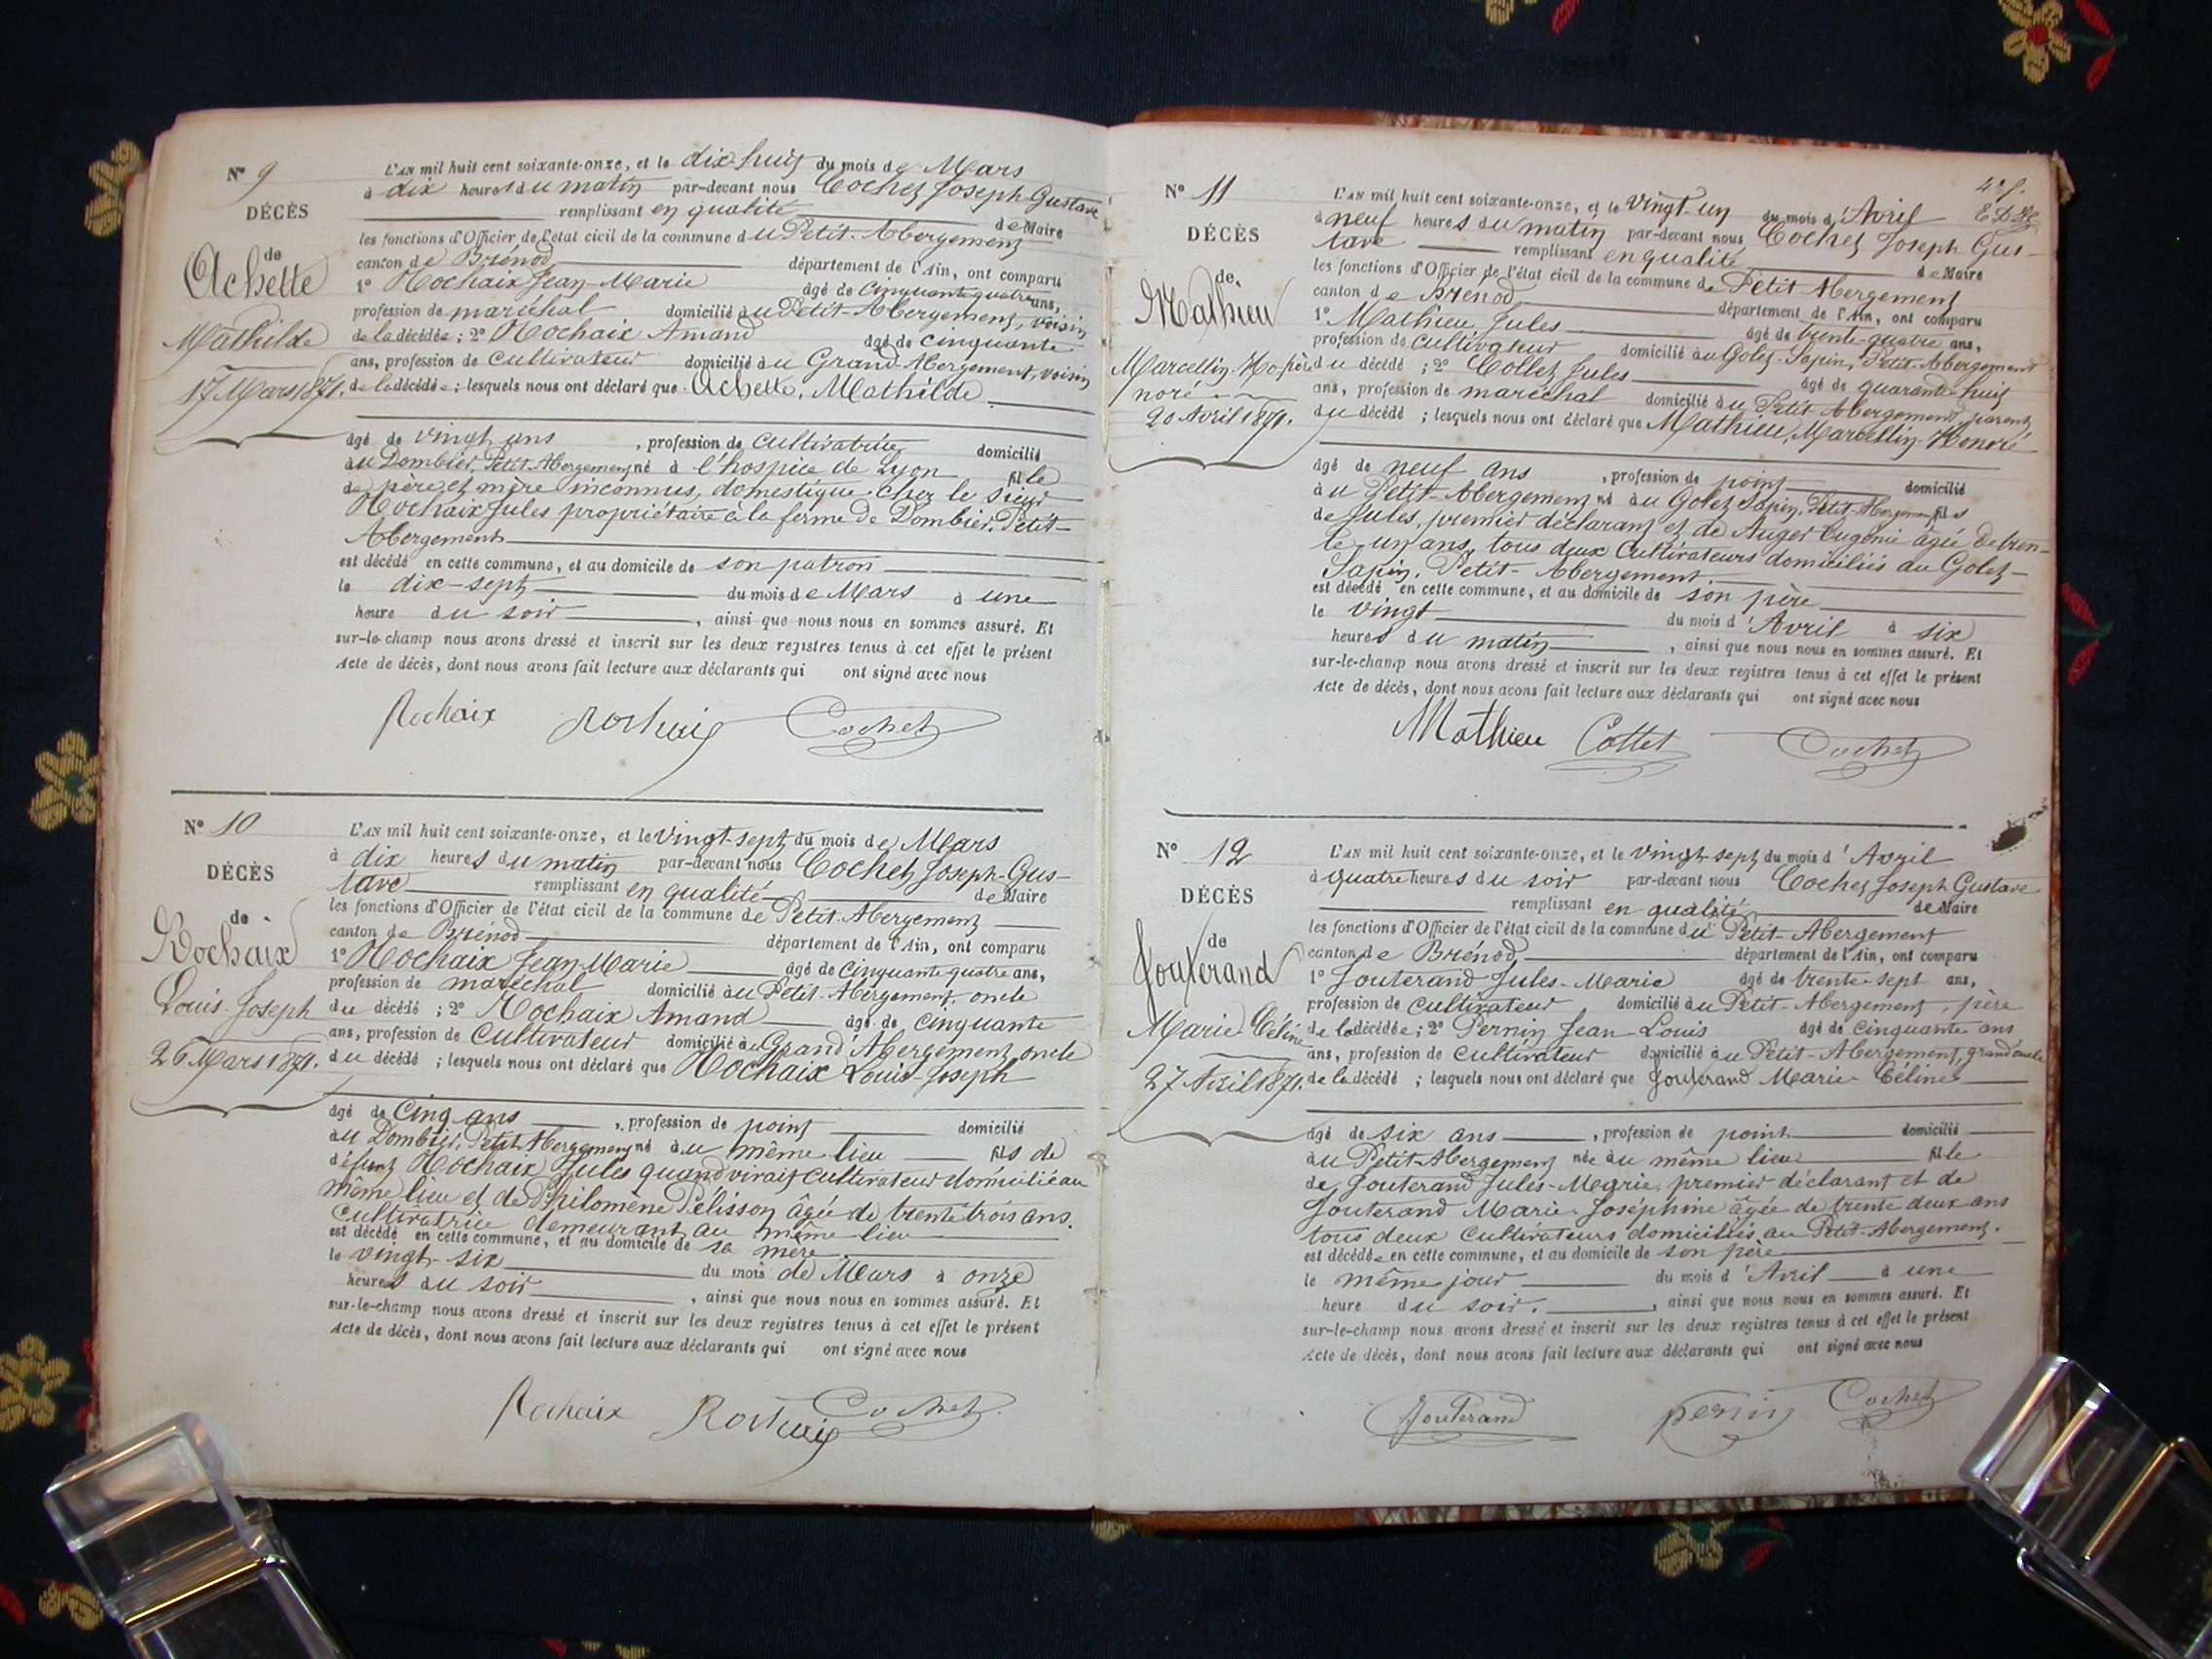 N° 9
DÉCÈS
de
Achette
Mathilde
17 Mars 1871.
L'AN mil huit cent soixante-onze, et le dix huit du mois de Mars
à dix heures du matin par-devant nous Cochet Joseph Gustave
remplissant en qualité de Maire
les fonctions d'Officier de l'état civil de la commune du Petit-Abergement
canton de Brénod département de l'Ain, ont comparu
1° Rochaix Jean-Marie âgé de cinquante quatre ans,
profession de maréchal domicilié au Petit-Abergement, voisin
de la décédée ; 2° Rochaix Amand âgé de cinquante
ans, profession de cultivateur domicilié au Grand Abergement, voisin
de la décédée ; lesquels nous ont déclaré que Achette, Mathilde
âgé de vingt ans , profession de cultivatrice domicilié
au Dombier, Petit-Abergement né à l'hospice de Lyon fille
de père et mère inconnus, domestique chez le sieur
Rochaix Jules propriétaire à la ferme de Dombier, Petit-
Abergement
est décédé en cette commune, et au domicile de son patron
le dix-sept du mois de Mars à une
heure du soir , ainsi que nous nous en sommes assuré. Et
sur-le-champ nous avons dressé et inscrit sur les deux registres tenus à cet effet le présent
Acte de décès, dont nous avons fait lecture aux déclarants qui ont signé avec nous
Rochaix Rochaix Cochet
N° 10
DÉCÈS
de
Rochaix
Louis-Joseph
26 Mars 1871.
L'AN mil huit cent soixante-onze, et le vingt-sept du mois de Mars
à dix heures du matin par-devant nous Cochet Joseph-Gus-
tave remplissant en qualité de Maire
les fonctions d'Officier de l'état civil de la commune de Petit-Abergement
canton de Brénod département de l'Ain, ont comparu
1° Rochaix Jean-Marie âgé de cinquante quatre ans,
profession de maréchal domicilié au Petit-Abergement, oncle
du décédé ; 2° Rochaix Amand âgé de cinquante
ans, profession de cultivateur domicilié au Grand Abergement oncle
du décédé ; lesquels nous ont déclaré que Rochaix Louis-Joseph
âgé de cinq ans , profession de point domicilié
au Dombier, Petit-Abergement né au même lieu fils de
défunt Rochaix Jules quand vivait cultivateur domicilié au
même lieu et de Philomène Pélisson âgée de trente trois ans.
cultivatrice demeurant au même lieu
est décédé en cette commune, et au domicile de sa mère
le vingt-six du mois de Mars à onze
heures du soir , ainsi que nous nous en sommes assuré. Et
sur-le-champ nous avons dressé et inscrit sur les deux registres tenus à cet effet le présent
Acte de décès, dont nous avons fait lecture aux déclarants qui ont signé avec nous
Rochaix Rochaix Cochet
4e f.
N° 11
DÉCÈS
de
Mathieu
Marcellin Ho
noré
20 Avril 1871.
L'AN mil huit cent soixante-onze, et le vingt-un du mois d'Avril
à neuf heures du matin par-devant nous Cochet Joseph Gus-
tave remplissant en qualité de Maire
les fonctions d'Officier de l'état civil de la commune de Petit Abergement
canton de Brénod département de l'Ain, ont comparu
1° Mathieu Jules âgé de trente-quatre ans,
profession de cultivateur domicilié au Golet-Sapin, Petit-Abergement
père du décédé ; 2° Collet Jules âgé de quarante-huit
ans, profession de maréchal domicilié au Petit Abergement parent
du décédé ; lesquels nous ont déclaré que Mathieu, Marcellin-Honoré
âgé de neuf ans , profession de point domicilié
au Petit-Abergement né au Golet Sapin, Petit-Abergement fils
de Jules, premier déclarant et de Auger Eugénie âgée de tren-
te un ans, tous deux cultivateurs domiciliés au Golet-
Sapin, Petit-Abergement.
est décédé en cette commune, et au domicile de son père
le vingt du mois d'Avril à six
heures du matin , ainsi que nous nous en sommes assuré. Et
sur-le-champ nous avons dressé et inscrit sur les deux registres tenus à cet effet le présent
Acte de décès, dont nous avons fait lecture aux déclarants qui ont signé avec nous
Mathieu Collet Cochet
N° 12
DÉCÈS
de
Jouterand
Marie Céline
27 Avril 1871.
L'AN mil huit cent soixante-onze, et le vingt-sept du mois d'Avril
à quatre heures du soir par-devant nous Cochet Joseph Gustave
remplissant en qualité de Maire
les fonctions d'Officier de l'état civil de la commune du Petit-Abergement
canton de Brénod, département de l'Ain, ont comparu
1° Jouterand Jules-Marie âgé de trente-sept ans,
profession de cultivateur domicilié au Petit-Abergement, père
de la décédée ; 2° Pernin Jean-Louis âgé de cinquante ans
ans, profession de cultivateur domicilié au Petit-Abergement, grand oncle
de la décédé ; lesquels nous ont déclaré que Jouterand Marie Céline
âgé de six ans , profession de point domicilié
au Petit-Abergement née au même lieu fille
de Jouterand Jules-Marie, premier déclarant et de
Jouterand Marie-Joséphine âgée de trente deux ans
tous deux cultivateurs domiciliés au Petit-Abergement.
est décédée en cette commune, et au domicile de son père
le même jour du mois d'Avril à une
heure du soir. , ainsi que nous nous en sommes assuré. Et
sur-le-champ nous avons dressé et inscrit sur les deux registres tenus à cet effet le présent
Acte de décès, dont nous avons fait lecture aux déclarants qui ont signé avec nous
Jouterand pernin Cochet